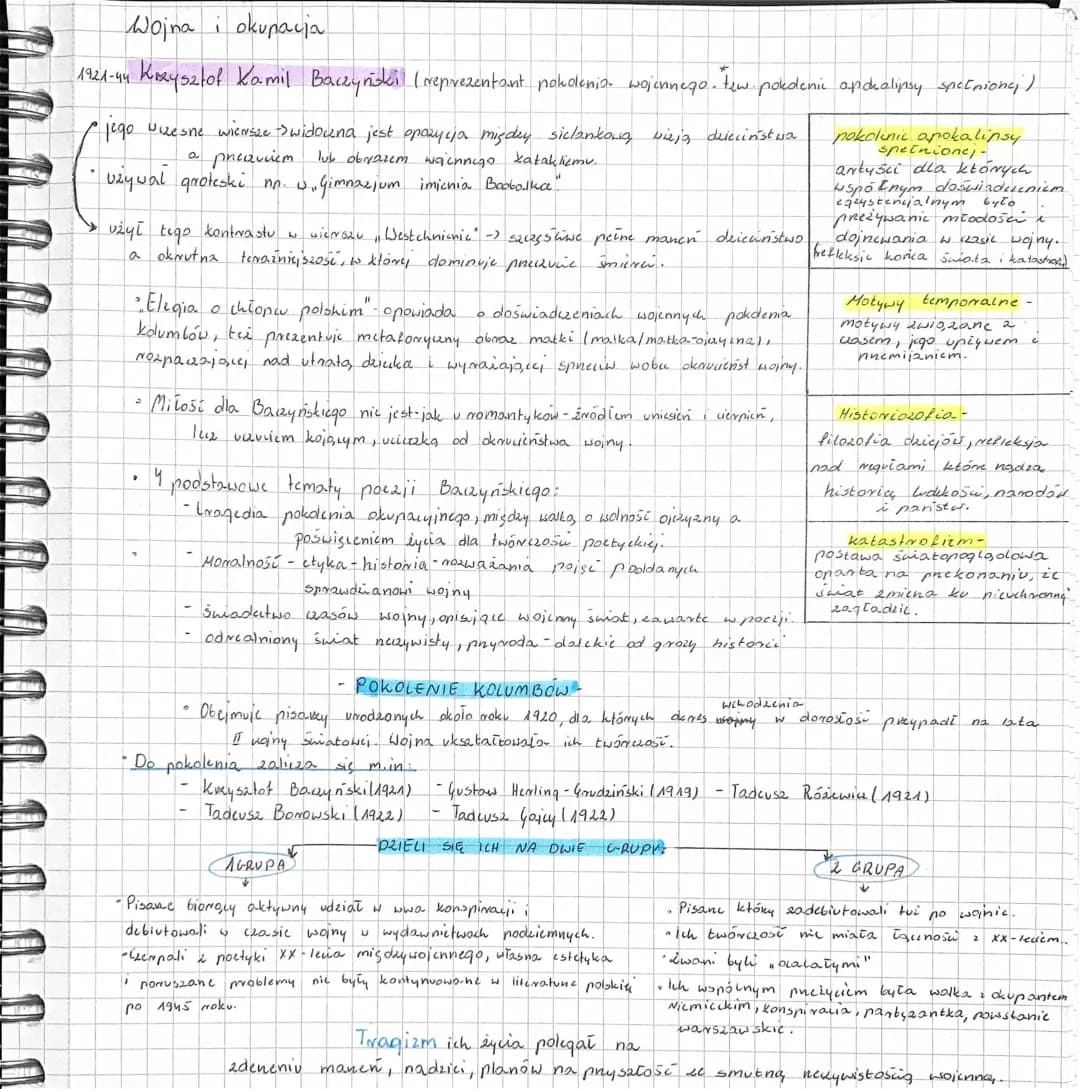 Wojna i okupacja
1921-44 Krzysztof Kamil Baczyński (reprezentant pokolenia wojennego - tzw. pokolenie apokalipsy spełnionej)
jego wczesne wiersze → widoczna jest opozycja między sielankową wizją dzieciństwa
a przeczuciem lub obrazem wojennego kataklizmu.
• używał groteski np. w „Gimnazjum imienia Boobalka"
użył tego kontrastu w wierszu „Westchnienie" → szczęśliwe pełne marzeń dzieciństwo
a okrutna teraźniejszość, w której dominuje przeczucie śmierci.
• „Elegia o chłopcu polskim" - opowiada o doświadczeniach wojennych pokolenia
kolumbów, też prezentuje metaforyczny obraz matki (matka/matka-ojczyzna),
rozpaczającej nad utratą dziecka i wyrażającej sprzeciw wobec okrucieństw wojny.
• Miłość dla Baczyńskiego nie jest - jak u romantyków - źródłem uniesień i cierpień,
lecz uczuciem kojącym, ucieczką od okrucieństwa wojny.
• 4 podstawowe tematy poezji Baczyńskiego:
- tragedia pokolenia okupacyjnego, między walką o wolność ojczyzny a
poświęceniem życia dla twórczości poetyckiej.
- Moralność - etyka - historia - rozważania pojęć poddanych
sprawdzianowi wojny
- świadectwo czasów wojny, opisujące wojenny świat, zawarte w poezji.
- odrealniony świat rzeczywisty, przyroda - dalekie od grozy historii
pokolenie apokalipsy
spełnionej -
artyści dla których
wspólnym doświadczeniem
egzystencjalnym było
przeżywanie młodości i
dojrzewania w czasie wojny.
(refleksje końca świata i katastrof)
Motywy temporalne -
motywy związane z
czasem, jego upływem i
przemijaniem.
Historiozofia -
filozofia dziejów, refleksja
nad regułami które rządzą
historią ludzkości, narodów
i państw.
katastrofizm -
postawa światopoglądowa
oparta na przekonaniu, że
świat zmierza ku nieuchronnej
zagładzie.
- POKOLENIE KOLUMBÓW -
• Obejmuje pisarzy urodzonych około roku 1920, dla których okres wchodzenia w dorosłość przypadł na lata
II wojny światowej. Wojna ukształtowała ich twórczość.
• Do pokolenia zalicza się m.in:
- Krzysztof Baczyński (1921) - Gustaw Herling-Grudziński (1919) - Tadeusz Różewicz (1921)
- Tadeusz Borowski (1922) - Tadeusz Gajcy (1922)
DZIELI SIĘ ICH NA DWIE GRUPY:
1 GRUPA
• Pisarze biorący aktywny udział w wwa konspiracji i
debiutowali w czasie wojny w wydawnictwach podziemnych.
• Czerpali z poetyki XX-lecia międzywojennego, własna estetyka
i poruszane problemy nie były kontynuowane w literaturze polskiej
po 1945 roku.
2 GRUPA
• Pisarze którzy zadebiutowali tuż po wojnie.
• Ich twórczość nie miała łączności z XX-leciem.
• zwani byli „ocalałymi"
• Ich wspólnym przeżyciem była walka z okupantem
niemieckim, konspiracja, partyzantka, powstanie
warszawskie.
Tragizm ich życia polegał na
zderzeniu marzeń, nadziei, planów na przyszłość ze smutną rzeczywistością wojenną.